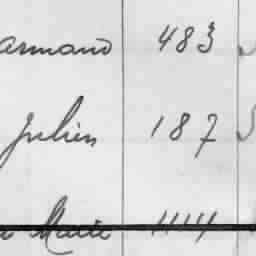 Armand 483
Julien 187
Marie 1114